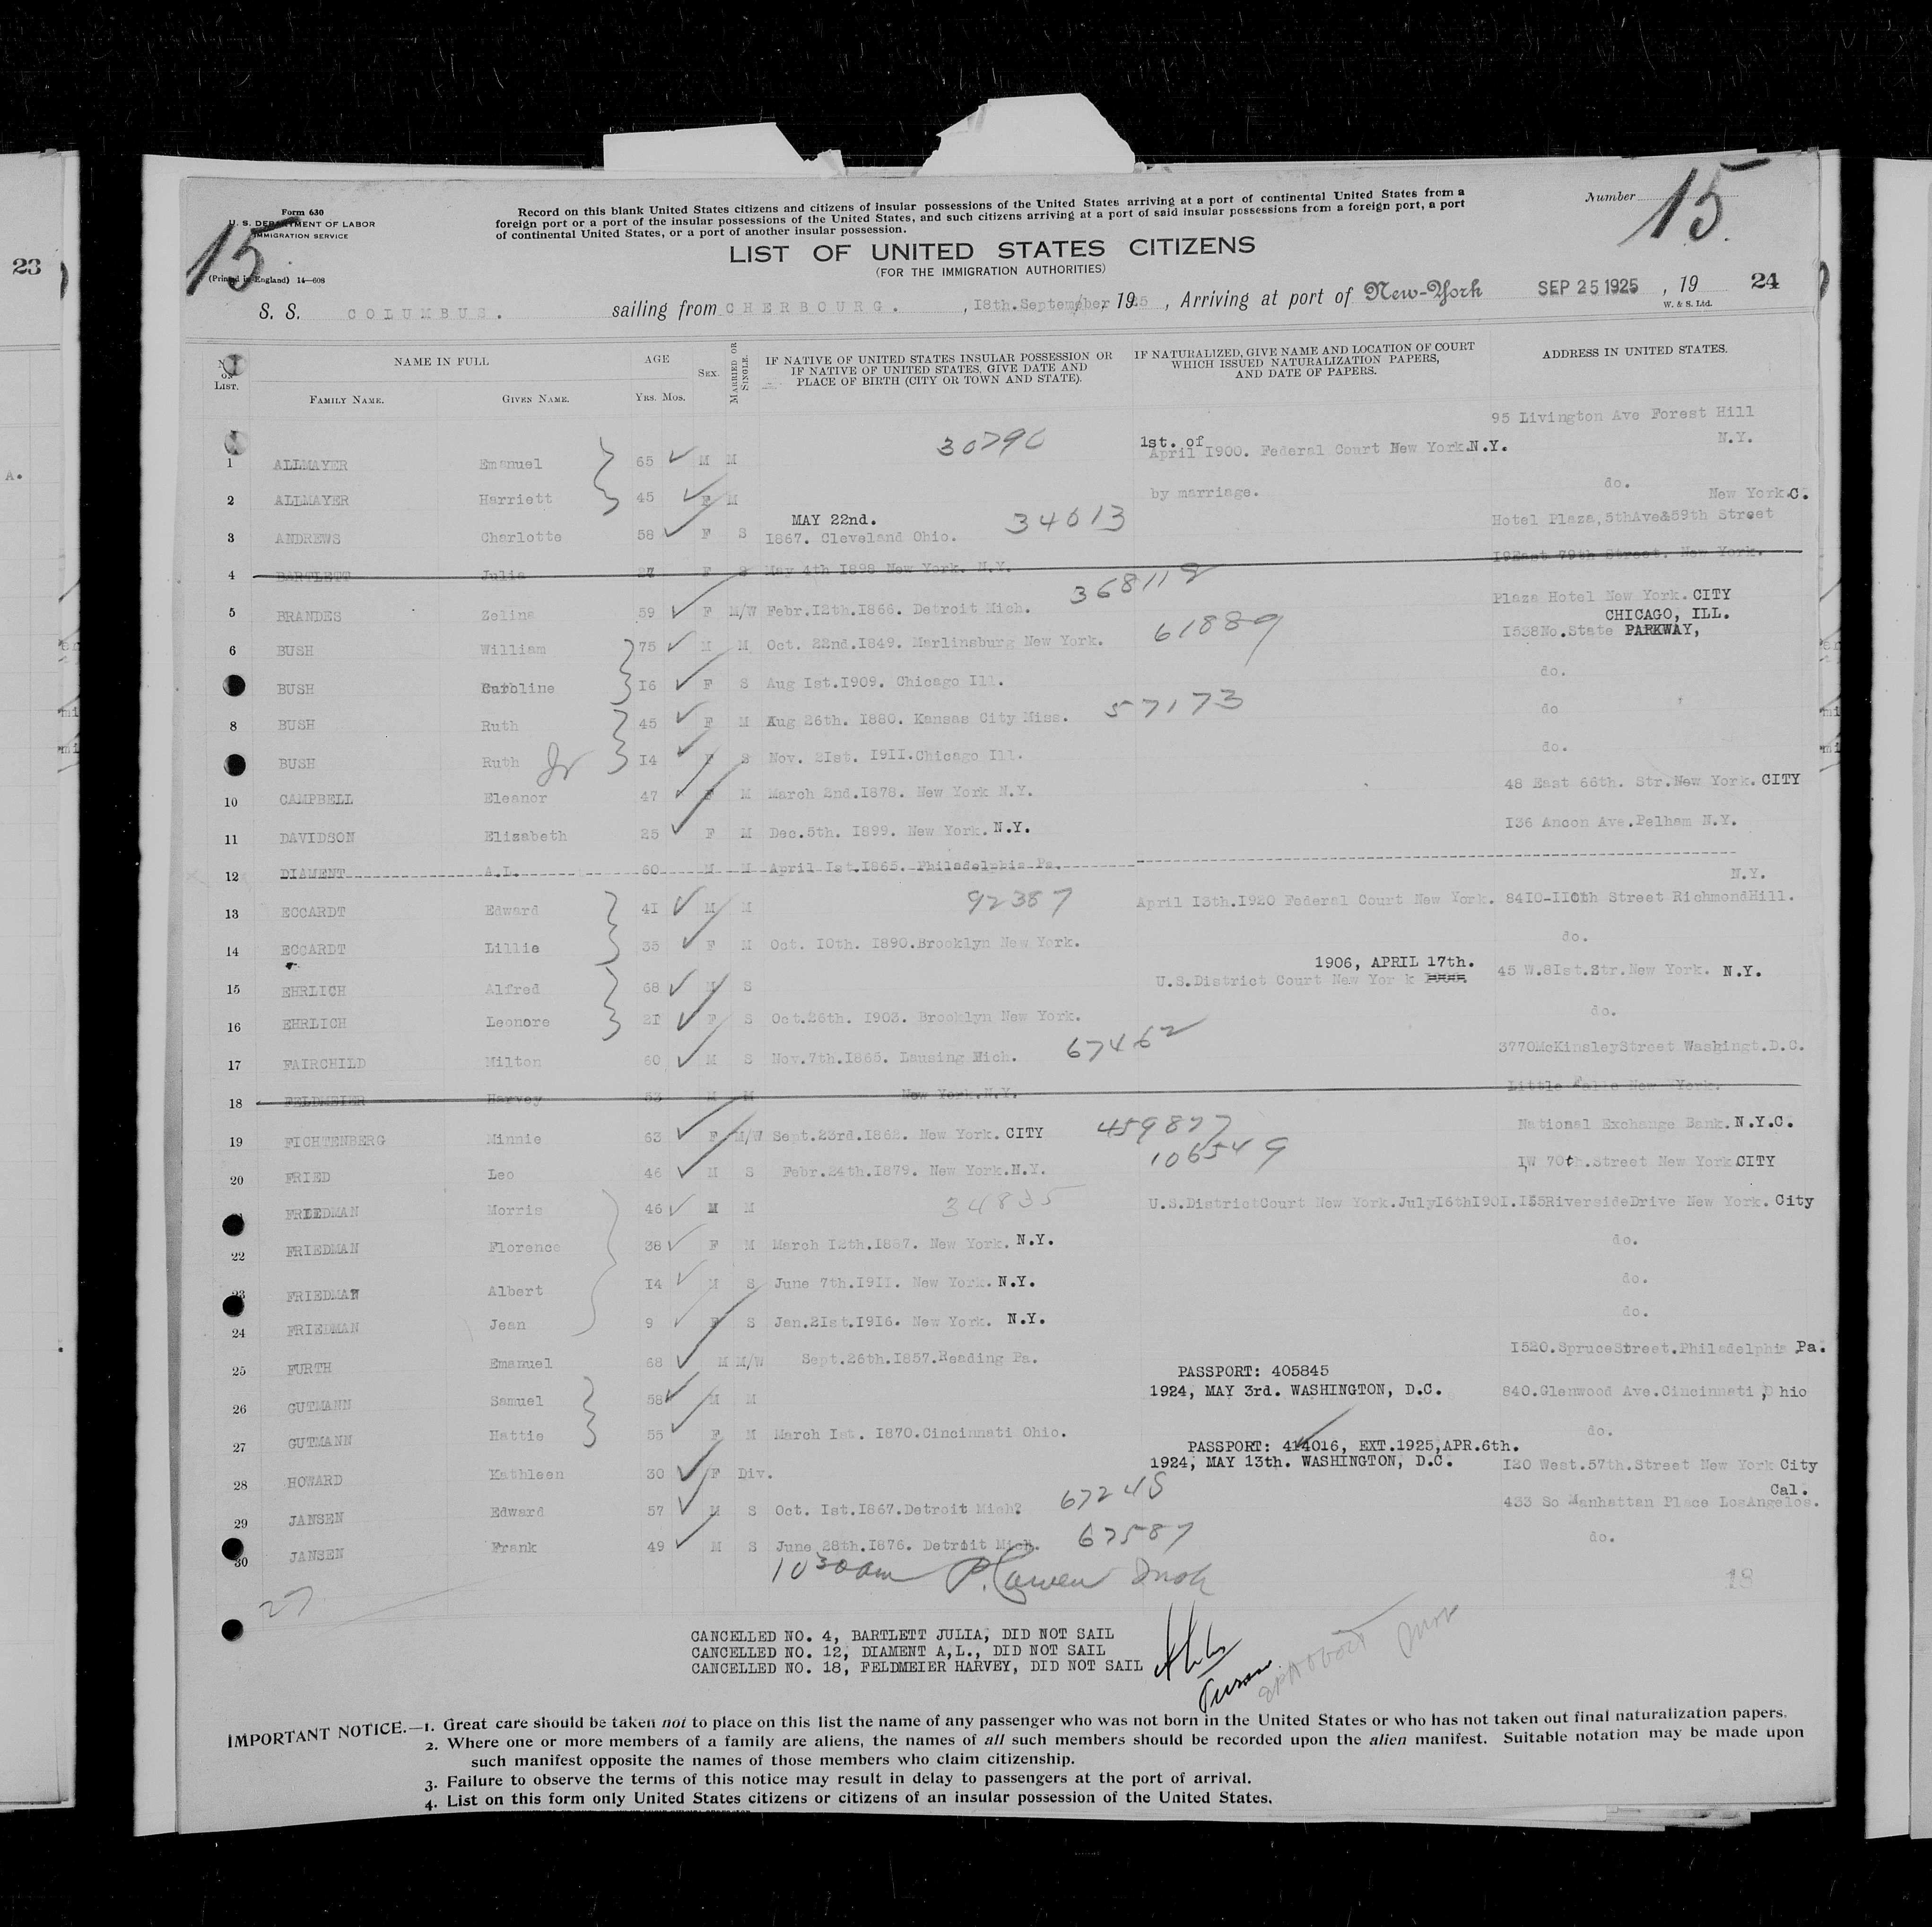 23
A.
Form 630
U. S. DEPARTMENT OF LABOR
IMMIGRATION SERVICE
15
(Printed in England) 14—608
Record on this blank United States citizens and citizens of insular possessions of the United States arriving at a port of continental United States from a
foreign port or a port of the insular possessions of the United States, and such citizens arriving at a port of said insular possessions from a foreign port, a port
of continental United States, or a port of another insular possession.
Number 15
LIST OF UNITED STATES CITIZENS
(FOR THE IMMIGRATION AUTHORITIES)
S. S. COLUMBUS. sailing from CHERBOURG. , 18th.September, 1925 , Arriving at port of New-York SEP 25 1925 , 19 24
W. & S. Ltd.
No. ON LIST. NAME IN FULL AGE SEX. MARRIED OR SINGLE. IF NATIVE OF UNITED STATES INSULAR POSSESSION OR IF NATIVE OF UNITED STATES, GIVE DATE AND PLACE OF BIRTH (CITY OR TOWN AND STATE). IF NATURALIZED, GIVE NAME AND LOCATION OF COURT WHICH ISSUED NATURALIZATION PAPERS, AND DATE OF PAPERS. ADDRESS IN UNITED STATES.
FAMILY NAME. GIVEN NAME. YRS. MOS.
95 Livington Ave Forest Hill
1 ALLMAYER Emanuel 65 M M 1st. of April 1900. Federal Court New York.N.Y. N.Y.
2 ALLMAYER Harriett 45 F M by marriage. do.
New York.C.
3 ANDREWS Charlotte 58 F S MAY 22nd. 1867. Cleveland Ohio. 34613 Hotel Plaza,5thAve&59th Street
4 BARTLETT Julia 27 F S May 4th 1898 New York. N.Y. 19East 79th Street. New York.
5 BRANDES Zelina 59 F M/W Febr.12th.1866. Detroit Mich. Plaza Hotel New York. CITY
CHICAGO, ILL.
6 BUSH William 75 M M Oct. 22nd.1849. Marlinsburg New York. 61889 1538No.State PARKWAY,
BUSH Caroline 16 F S Aug 1st.1909. Chicago Ill. do.
8 BUSH Ruth 45 F M Aug 26th. 1880. Kansas City Miss. 57173 do
BUSH Ruth Jr 14 F S Nov. 21st. 1911.Chicago Ill. do.
10 CAMPBELL Eleanor 47 F M March 2nd.1878. New York N.Y. 48 East 66th. Str.New York. CITY
11 DAVIDSON Elizabeth 25 F M Dec.5th. 1899. New York. N.Y. 136 Ancon Ave.Pelham N.Y.
12 DIAMENT A.L. 60 M M April 1st.1865. Philadelphia Pa.
N.Y.
13 ECCARDT Edward 41 M M 92387 April 13th.1920 Federal Court New York. 8410-110th Street RichmondHill.
14 ECCARDT Lillie 35 F M Oct. 10th. 1890.Brooklyn New York. do.
1906, APRIL 17th.
15 EHRLICH Alfred 68 M S U.S.District Court New Yor k 45 W.81st.Str.New York. N.Y.
16 EHRLICH Leonore 21 F S Oct.26th. 1903. Brooklyn New York. do.
17 FAIRCHILD Milton 60 M S Nov.7th.1865. Lausing Mich. 67462 3770McKinsleyStreet Washingt.D.C.
18 FELDMEIER Harvey 53 M M New York.N.Y. Little Falls New York.
19 FICHTENBERG Minnie 63 F M/W Sept.23rd.1862. New York. CITY 459877 National Exchange Bank. N.Y.C.
20 FRIED Leo 46 M S Febr.24th.1879. New York.N.Y. 106549 1W 70th.Street New York CITY
FRIEDMAN Morris 46 M M 34835 U.S.DistrictCourt New York.July16th1901. 155RiversideDrive New York. City
22 FRIEDMAN Florence 38 F M March 12th.1887. New York. N.Y. do.
23 FRIEDMAN Albert 14 M S June 7th.1911. New York. N.Y. do.
24 FRIEDMAN Jean 9 F S Jan.21st.1916. New York. N.Y. do.
25 FURTH Emanuel 68 M M/W Sept.26th.1857.Reading Pa. 1520.SpruceStreet.Philadelphia Pa.
PASSPORT: 405845
26 GUTMANN Samuel 58 M M 1924, MAY 3rd. WASHINGTON, D.C. 840.Glenwood Ave.Cincinnati , Ohio
27 GUTMANN Hattie 55 F M March 1st. 1870.Cincinnati Ohio. do.
PASSPORT: 414016, EXT.1925,APR.6th.
28 HOWARD Kathleen 30 F Div. 1924, MAY 13th. WASHINGTON, D.C. 120 West.57th.Street New York City
Cal.
29 JANSEN Edward 57 M S Oct. 1st.1867.Detroit Mich? 67245 433 So Manhattan Place LosAngelos.
30 JANSEN Frank 49 M S June 28th.1876. Detroit Mich. 67587 do.
10 30 am
27
18
CANCELLED NO. 4, BARTLETT JULIA, DID NOT SAIL
CANCELLED NO. 12, DIAMENT A,L., DID NOT SAIL
CANCELLED NO. 18, FELDMEIER HARVEY, DID NOT SAIL
IMPORTANT NOTICE.—1. Great care should be taken not to place on this list the name of any passenger who was not born in the United States or who has not taken out final naturalization papers.
2. Where one or more members of a family are aliens, the names of all such members should be recorded upon the alien manifest. Suitable notation may be made upon
such manifest opposite the names of those members who claim citizenship.
3. Failure to observe the terms of this notice may result in delay to passengers at the port of arrival.
4. List on this form only United States citizens or citizens of an insular possession of the United States.